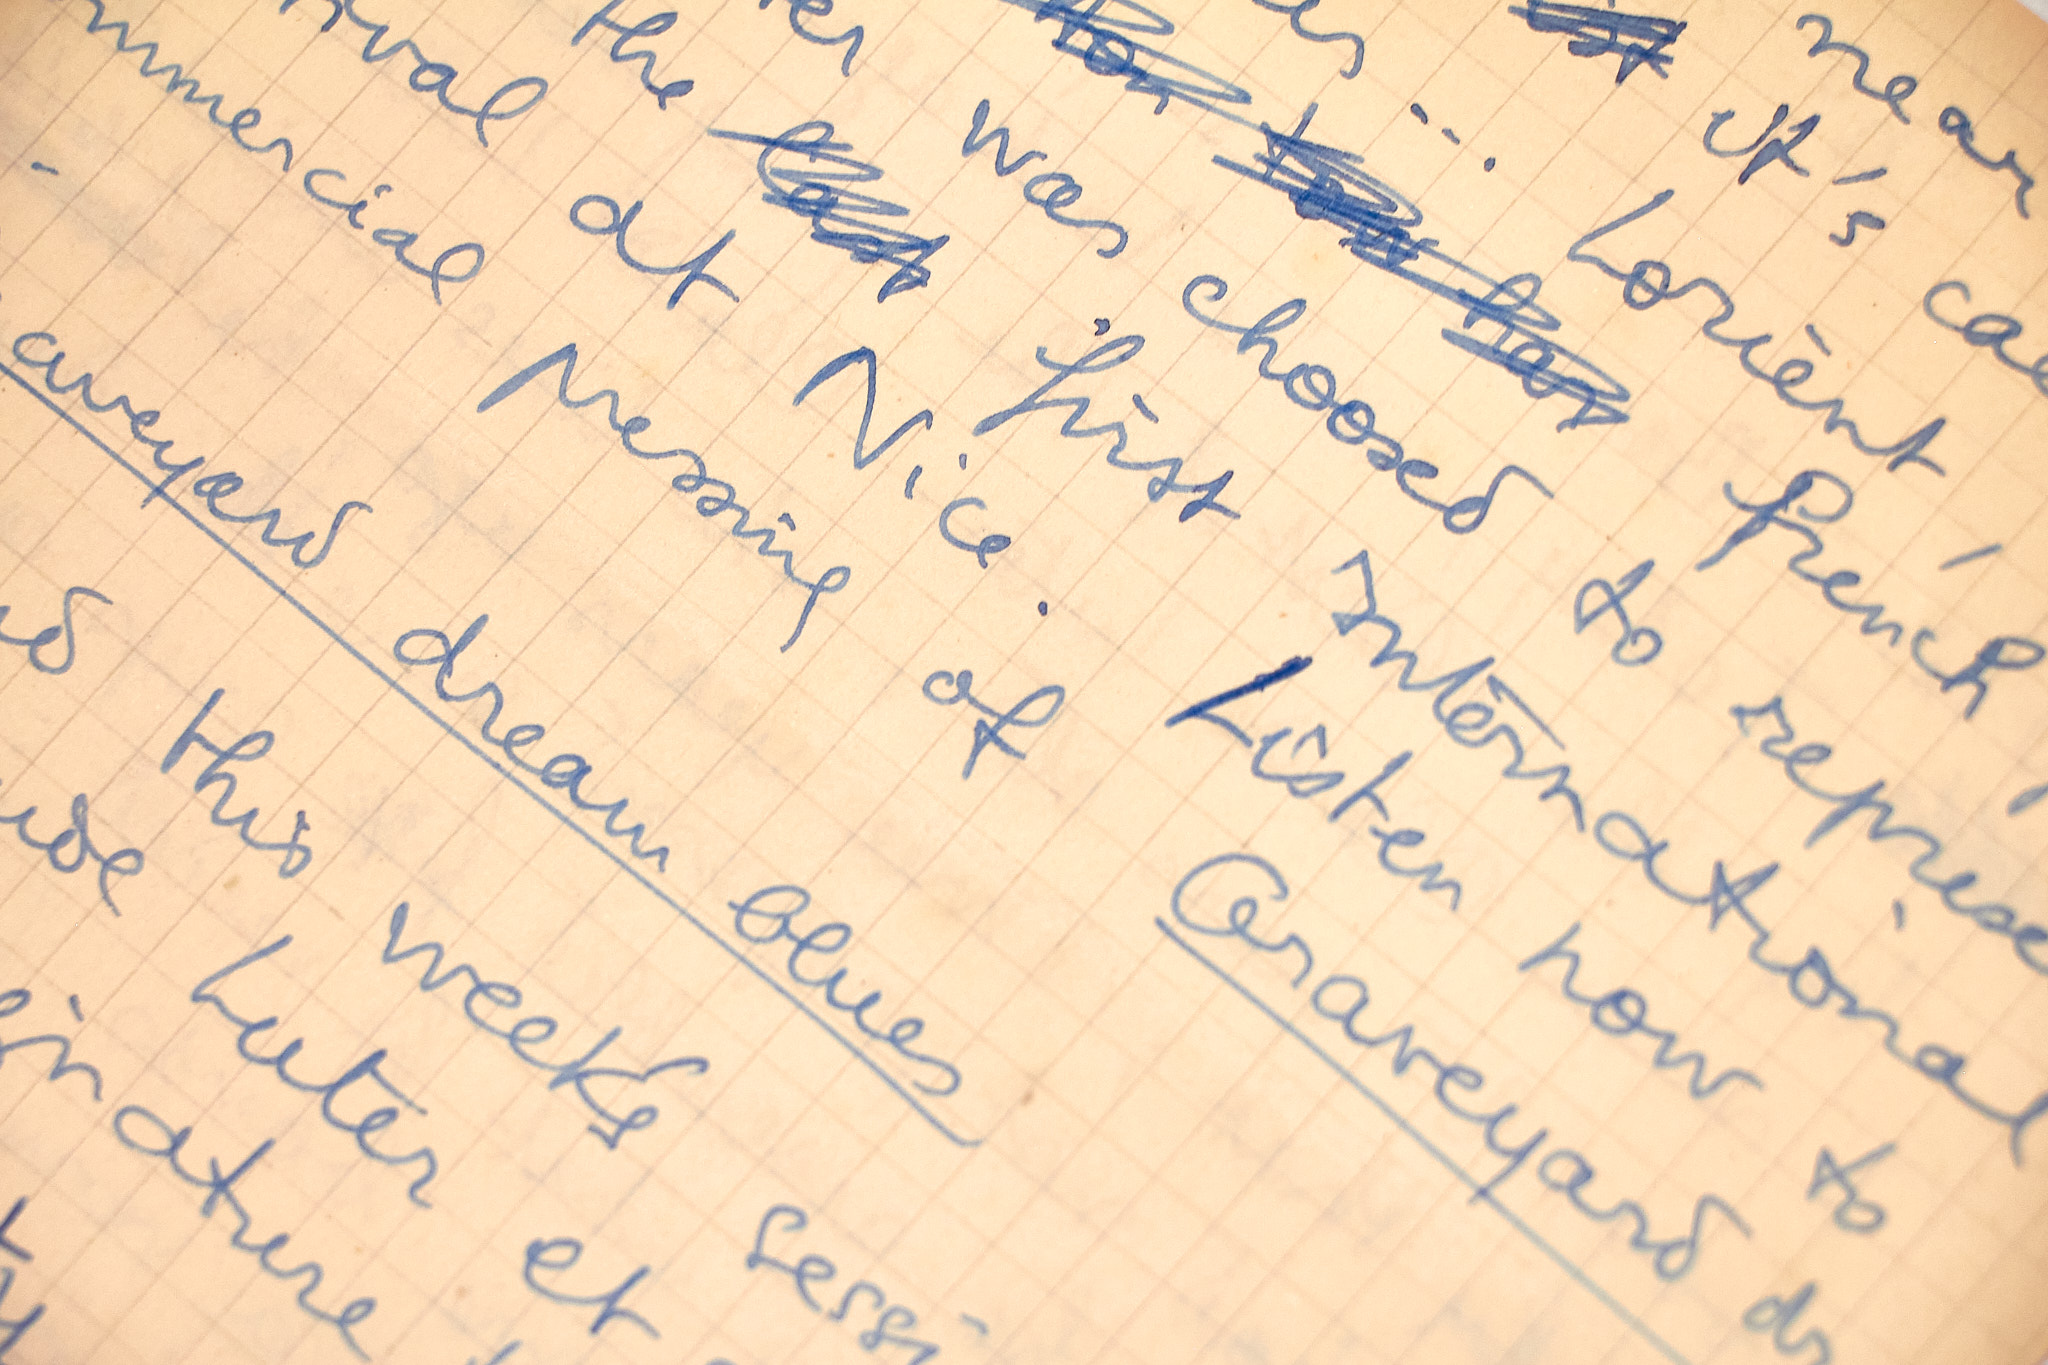 near
it's cal
es ... Lorient,
french
er was choosed to represe
the first International
ival at Nice. Listen now to
mmercial pressing of Graveyard dr
aveyard dream blues
this weeks sessi
ude Luter et
gnature